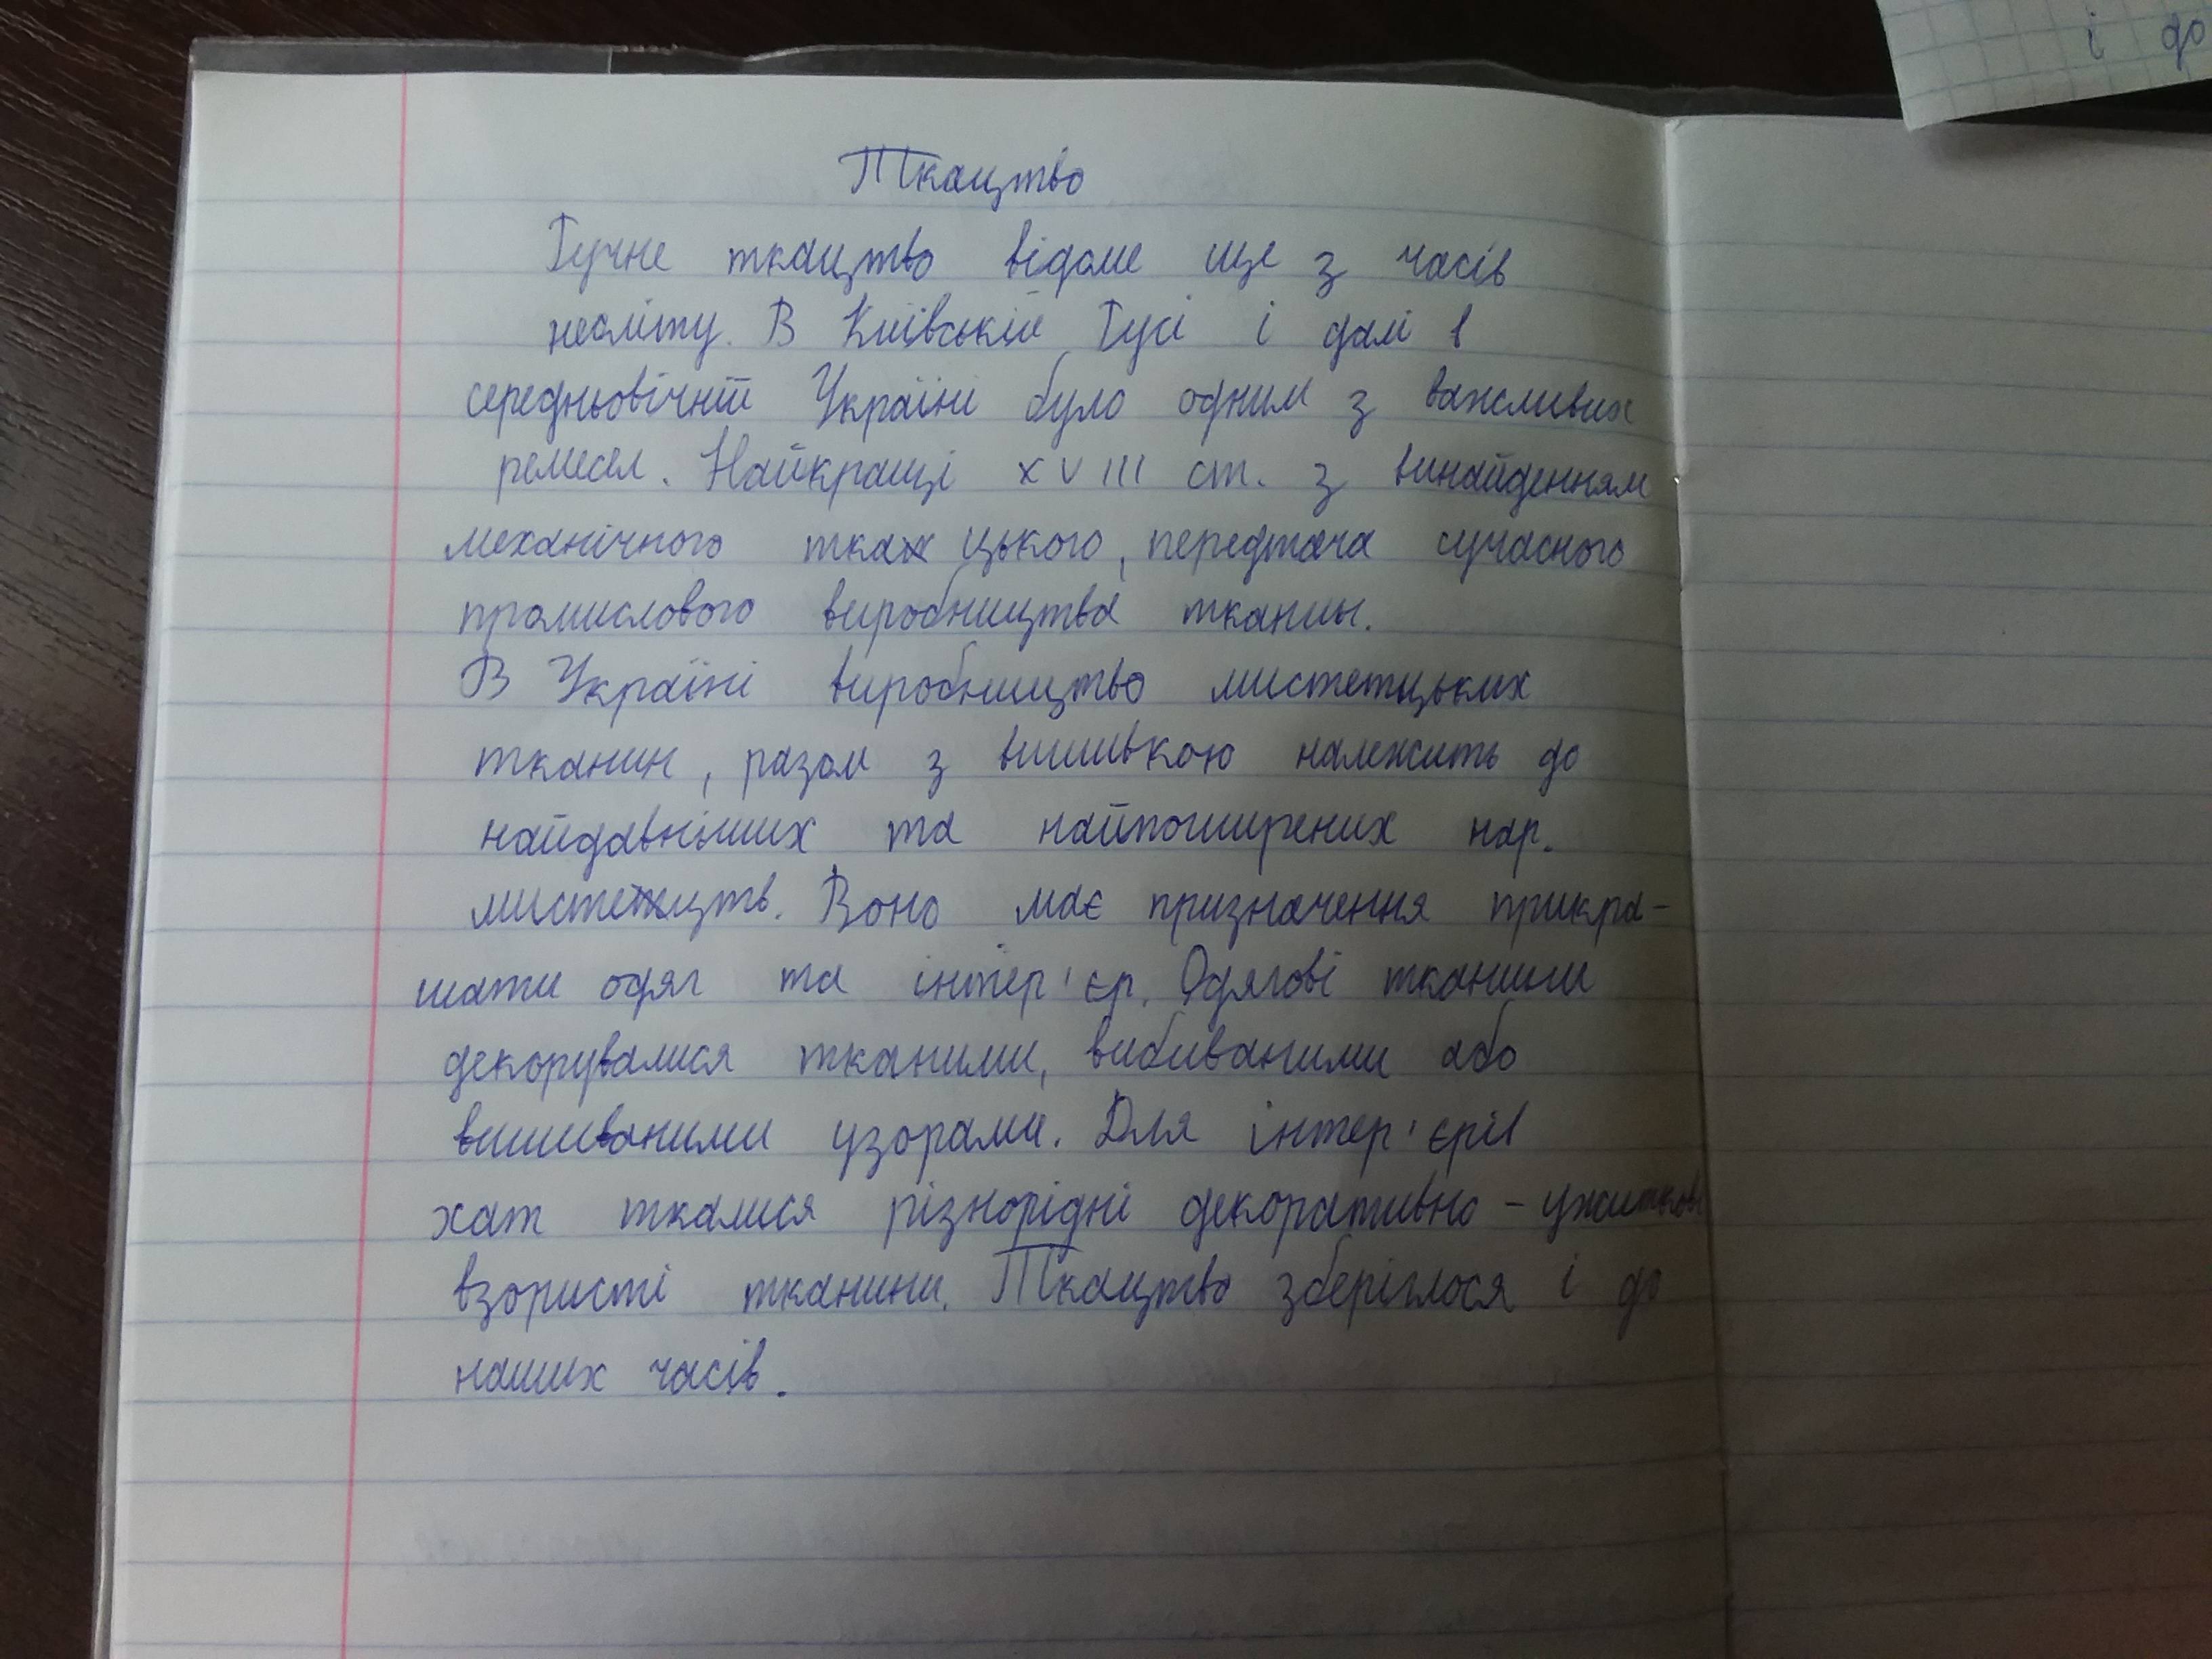 Ткацтво
Ручне ткацтво відоме ще з часів
неоліту. В Київській Русі і далі в
середньовічній Україні було одним з важливих
ремесел. Найкращі XVIII ст. з винайденням
механічного тка цького, передтеча сучасного
промислового виробництва тканин.
В Україні виробництво мистетцьких
тканин, разом з вишивкою належить до
найдавніших та найпоширених нар.
мистецтв. Воно має призначення прикра-
шати одяг та інтер'єр. Одягові тканини
декорувалися тканими, вибиваними або
вишиваними узорами. Для інтер'єрів
хат ткалися різнорідні декоративно - ужиткові
взористі тканини. Ткацтво зберіглося і до
наших часів.
і до